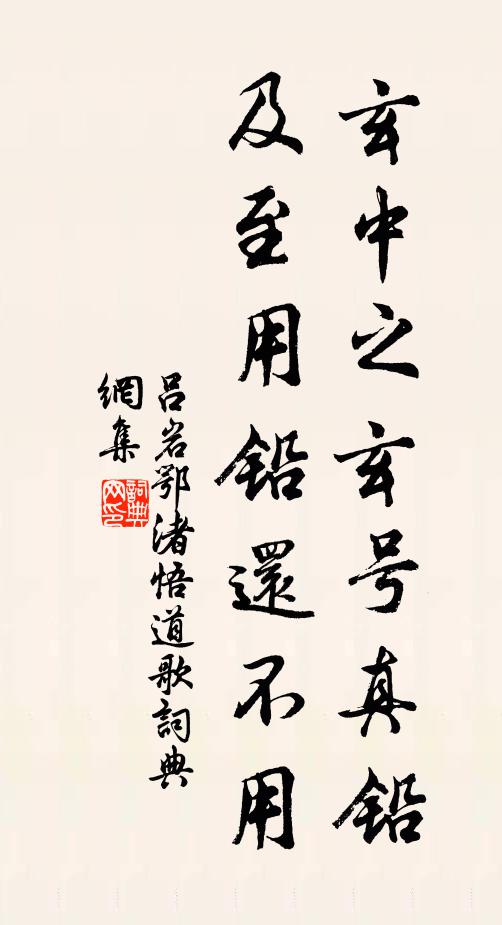 玄中之玄号真铅
及至用铅還不用
吕岩鄂渚悟道歌詞典
網集
詞典网印